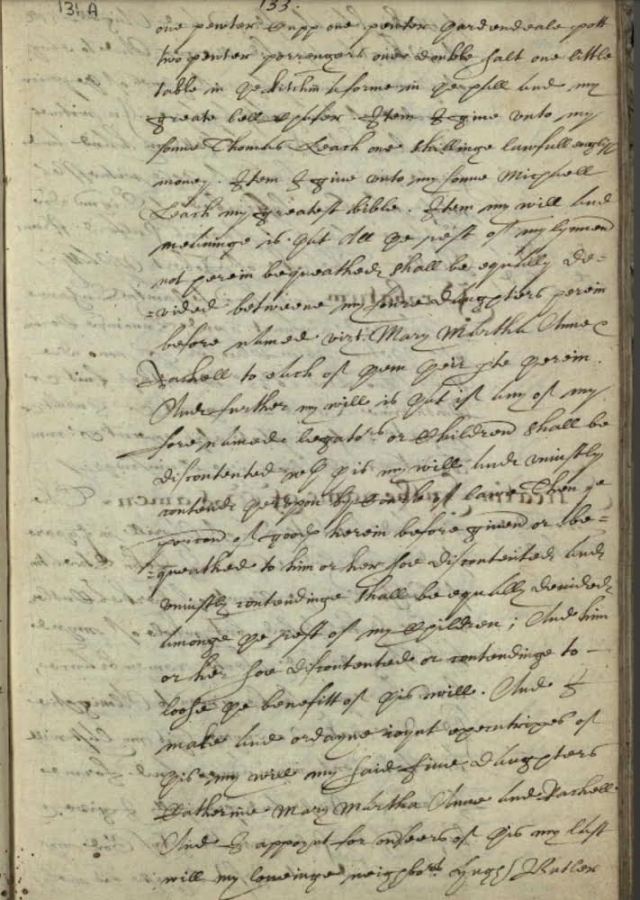 131A 133.
one pewter Cupp one pewter pott
two pewter porrengers one double salt one little
table in ye kitchin & forme in ye hall and my
greate bell Item I give unto my
sonne Thomas Leach one shillinge lawfull english
money. Item I give unto my sonne Michaell
Leach my greatest bible. Item my will and
meaninge is that All the rest of my lynnen
not herein bequeathed shall be equally de=
=vided betweene my foure daughters herein
before named vizt Mary Martha Anne &
Rachell to each of them their pte therein.
And further my will is that if any of my
fore named legators or Children shall be
discontented wth this my will and uniustly
contend thereupon by Course of lawe Then ye
porcon of goods herein before given or be=
=queathed to him or her soe discontented and
uniustly contendinge shall be equally devided
amonge ye rest of my Children; And him
or her soe discontented or contendinge to -
loose ye benefitt of this will. And I
make and ordayne ioynt executrixes of
this my will my said five daughters
Katherine Mary Martha Anne and Rachell
And I appoynt for ouseers of this my last
will my loveinge neighbors Hugh Butler